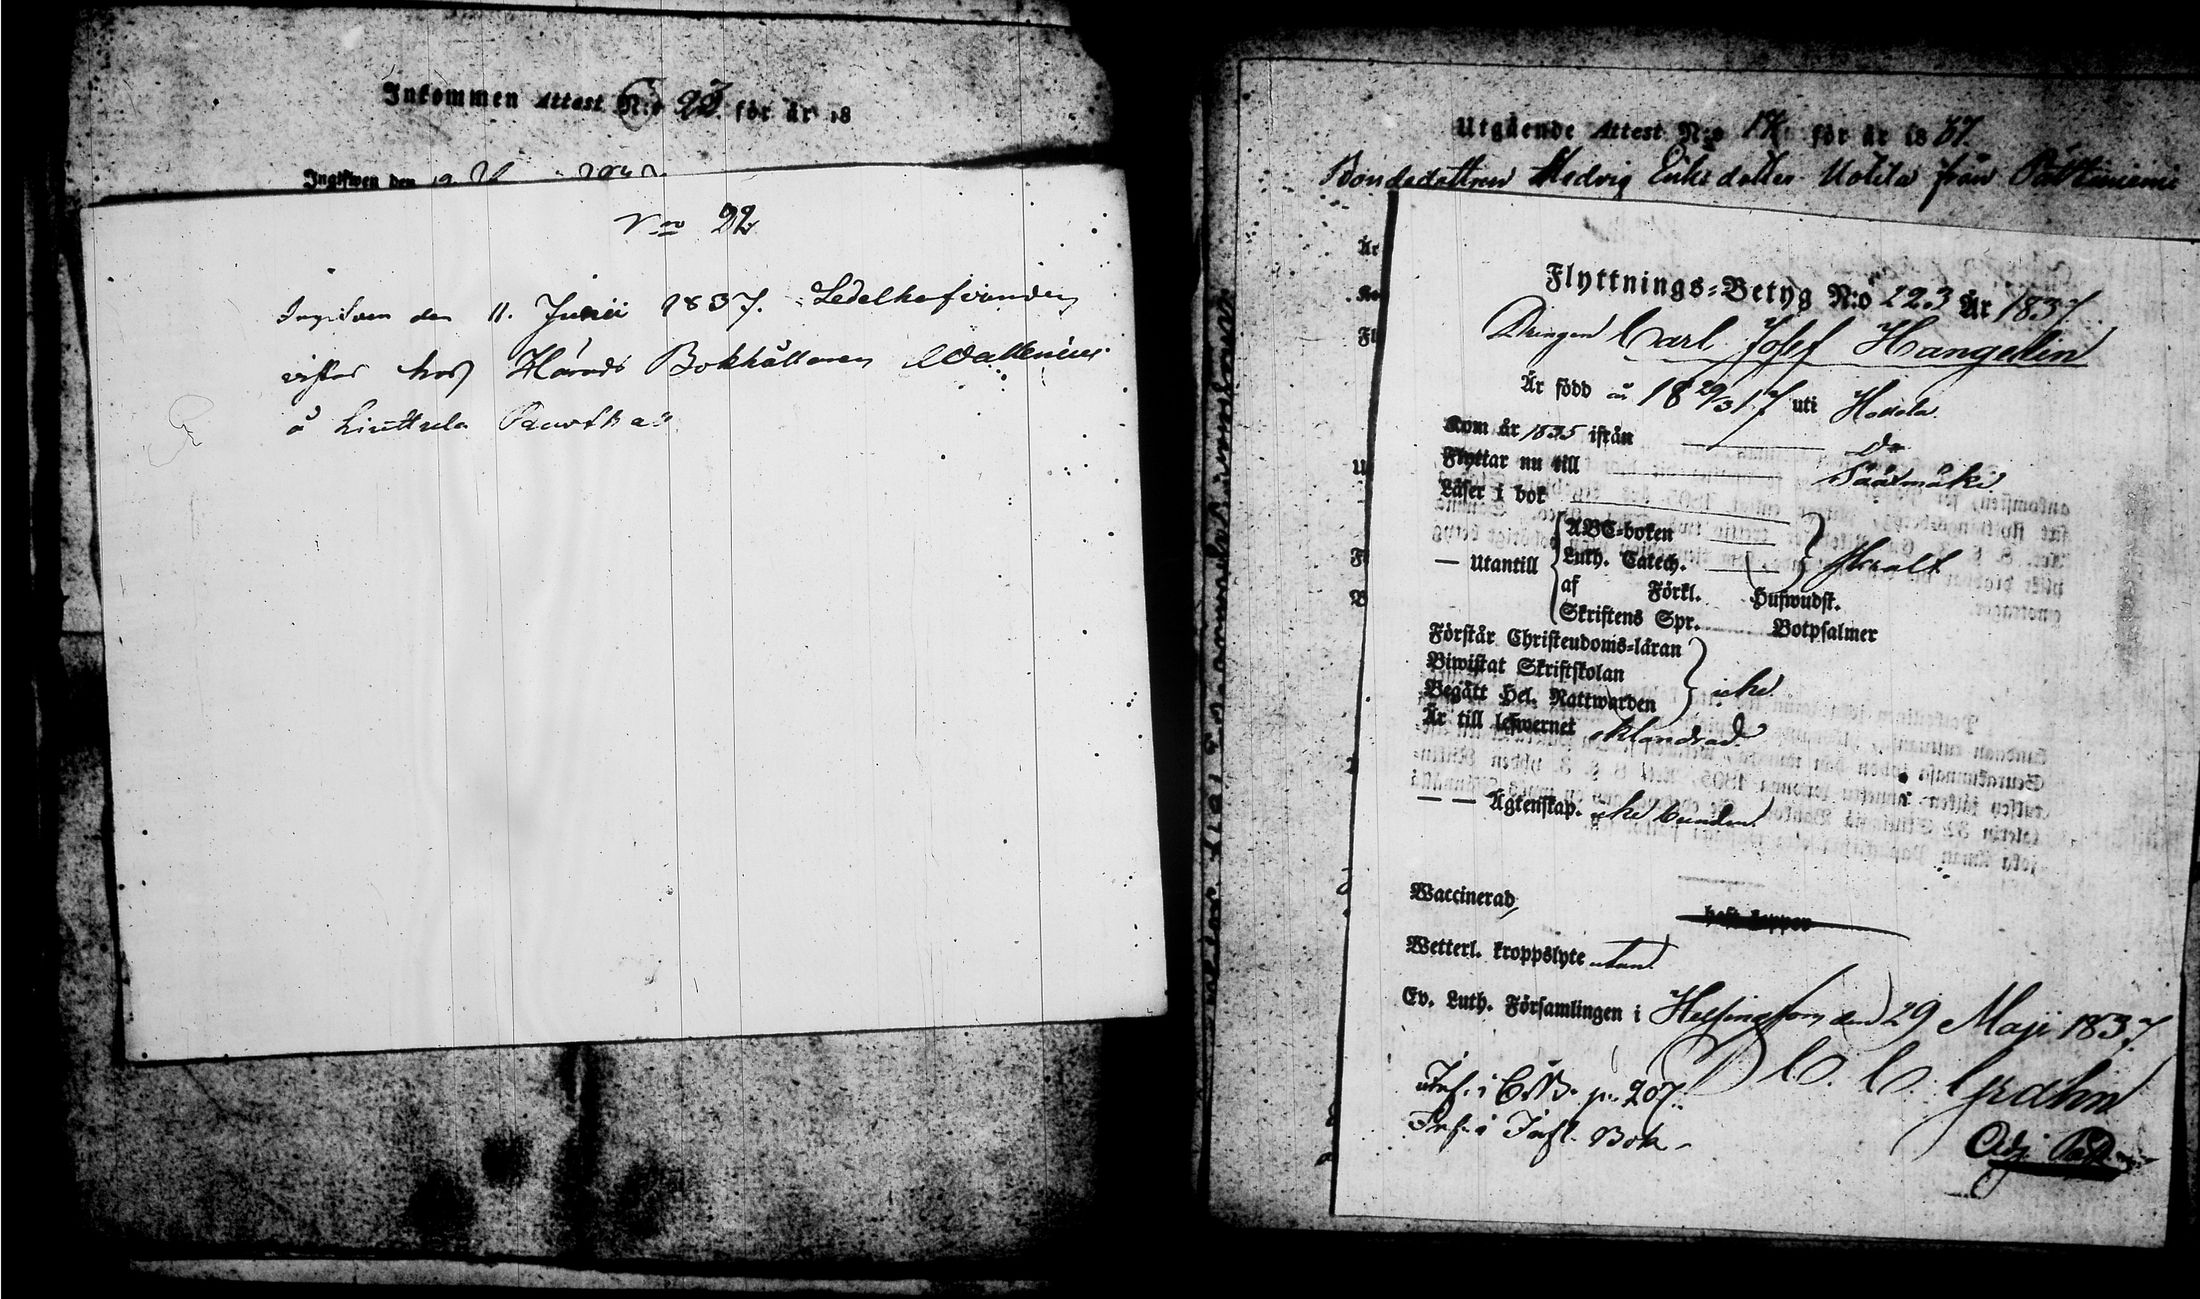 Inkommen Attest N:o 23. för år 18
Ingifwen den
N:o 22
Ingifven den 11. Junii 1837. Sedelhafvanden
vistas hos Härads Bokhållaren Wallenius
å Liuttula
Utgående Attest N:o för år 1837.
Bondedottren Hedvig Eriksdotter Uotila från
Flyttnings-Betyg N:o 223 År 1837
Drengen Carl Josef Hangelin
Är född år 18 29/3 17 uti
Kom år 1835 ifrån do
Flyttar nu till Sääxmäki
Läser i bok
— Utantill
ABC-boken
Luth. Catech.
af Förkl. Huswudst.
Skriftens Spr. Botpsalmer
svalt
Förstår Christendoms-läran
Biwistat Skriftskolan
Begått Hel. Nattwarden
icke
Är till lefwernet oklandrad
— — Ägtenskap. icke bunden
Waccinerad,
haft koppor
Wetterl. kroppslyte utan
Ev. Luth. Församlingen i Helsingfors den 29 Maji 1837.
C. C. Grahn
Adj.
Inf. i C.B. p. 207.
Inf. i Infl. Bok